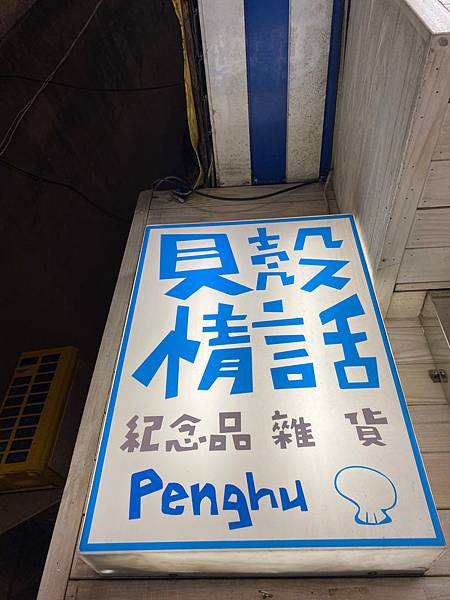 貝殼
情話
紀念品 雜貨
Penghu